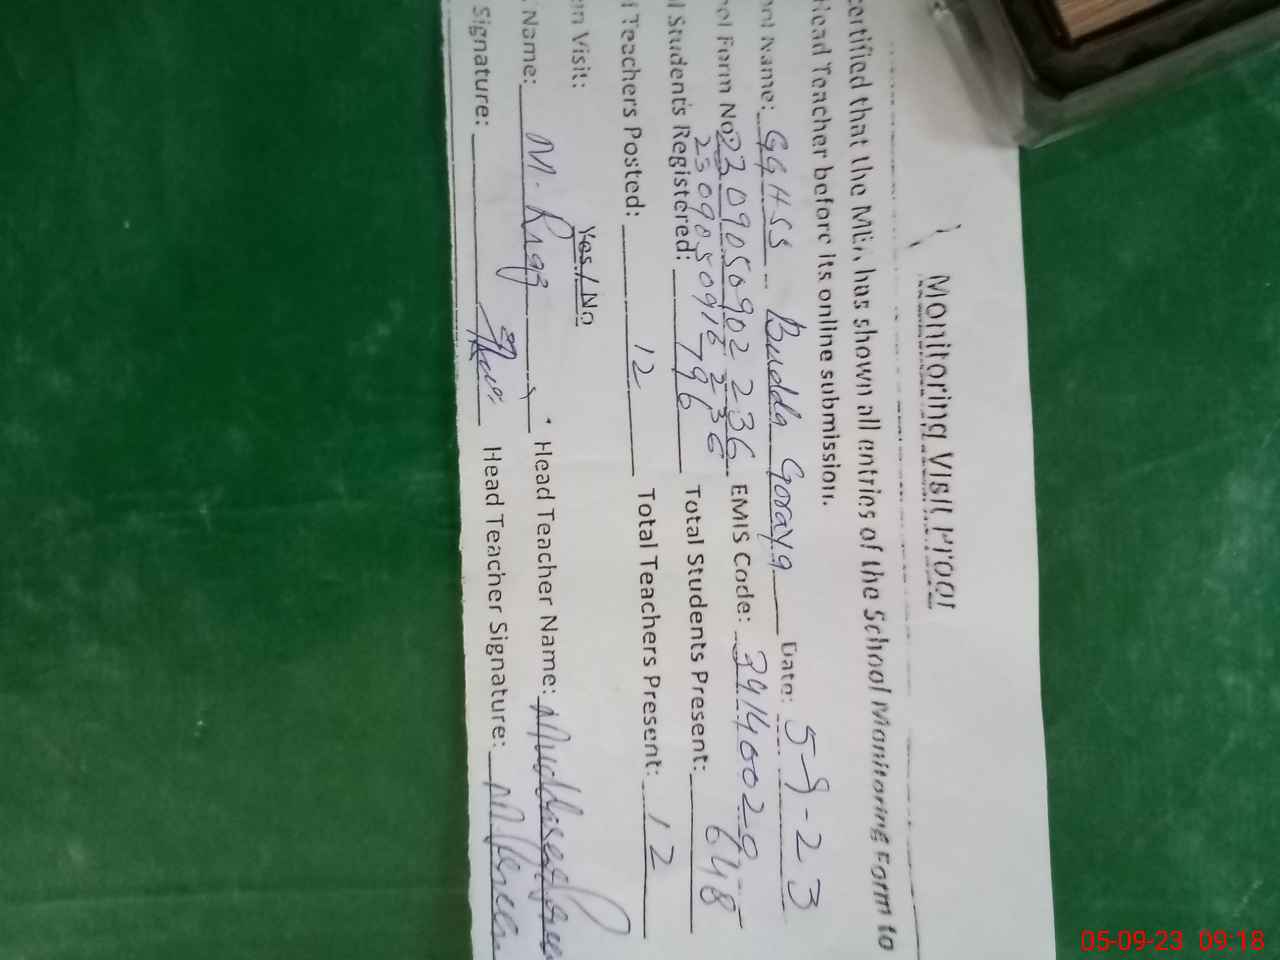 Monitoring Visit Proof
certified that the MEA has shown all entries of the School Monitoring Form to
Head Teacher before its online submission.
ool Name: GGHSS Budda Goraya Date: 5-9-23
ool Form No: 2309050902236 EMIS Code: 34140029
2309050916236
l Students Registered: 796 Total Students Present: 648
l Teachers Posted: 12 Total Teachers Present: 12
en Visit: Yes / No
Name: M. Riaz Head Teacher Name:
Signature: Head Teacher Signature:
05-09-23 09:18